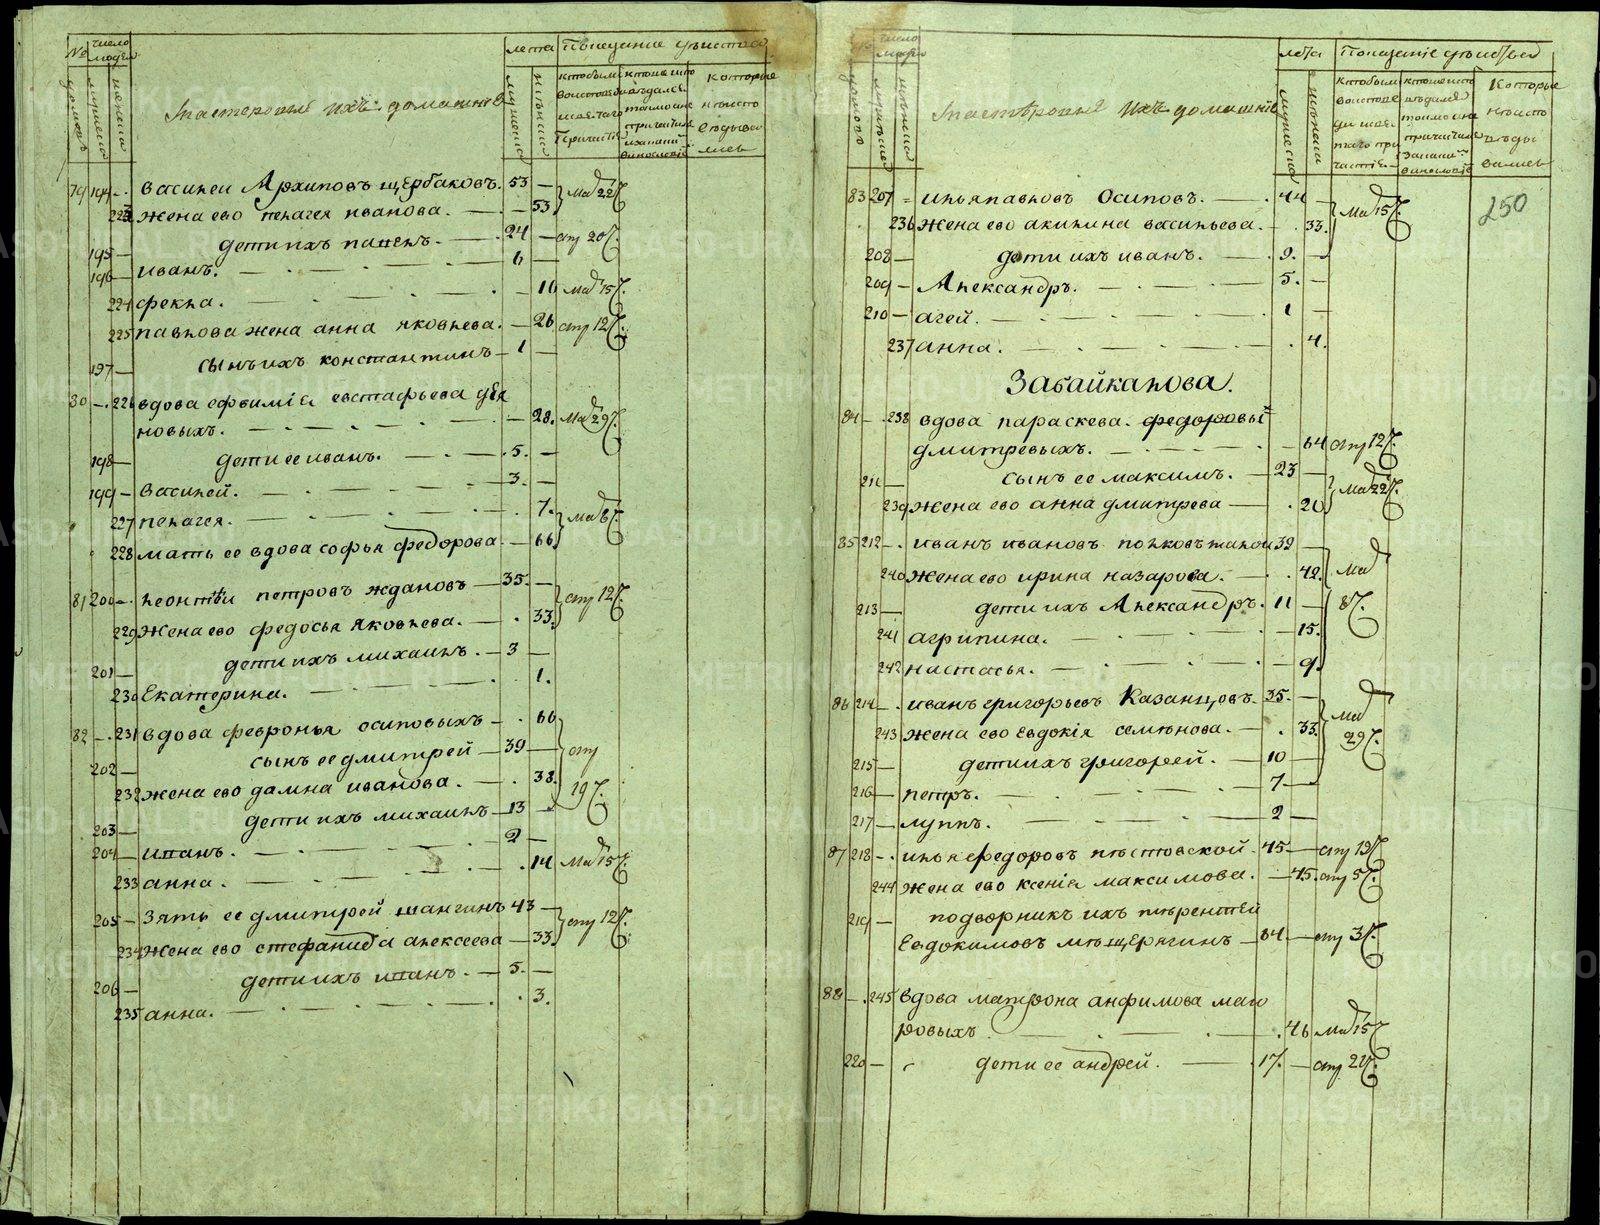 № домовъ
число людей
мужеска
женска
и мастеровые ихъ домашнiе
лета
мужеска
женска
Показание действа
79 194 - василеи Архиповъ щербаковъ. 53 — маiя 22
223 жена ево пелагея иванова. — 53
195 — дети ихъ павелъ. 24 — апр 20
196 — иванъ. 6 —
224 фекла. — 10 маiя 15
225 павлова жена анна яковлева. — 26 апр 12
197 — сынъ ихъ константинъ 1 —
80 - 226 вдова ефимiя евстафьева
новыхъ. — 28. маiя 29
198 — дети ее иванъ. 5. —
199 — василей. 3. —
227 пелагея. 7. маiя 8
228 мать ее вдова софья федорова — 66
81 200 - леонтей петровъ ждановъ — 35. — апр 12
229 жена ево федосья яковлева. — 33.
201 — дети ихъ михаилъ. — 3 —
230 Екатерина. 1.
82 - 231 вдова февронья осиповыхъ — 66 апр
202 — сынъ ее дмитрей — 39 —
232 жена ево дамна иванова. — 38. 19
203 — дети ихъ михаилъ — 13 —
204 — иванъ. 2 —
233 анна. 14 маiя 15
205 — зять ее дмитрей шангинъ 43 — апр 12
234 жена ево стефанида алексеева — 33.
206 — дети ихъ иванъ. — 5. —
235 анна. 3.
число людей
мужеска
женска
и мастеровые ихъ домашнiе
лета
мужеска
женска
Показанiе действа
250
83 207 - илья павловъ Осиповъ. 44 — маiя 15
236 жена ево акилина васильева. 33.
208 — дети ихъ иванъ. 9. —
209 — Александръ. 5. —
210 — агей. 1 —
237 анна. 4.
Забайкалова.
84 - 238 вдова параскева федоровы
дмитревыхъ. — 64 апр 12
211 — сынъ ее максимъ. — 23 — маiя 22
239 жена ево анна дмитрева — 20
85 212 - иванъ ивановъ 39 — маiя
240 жена ево ирина назарова. — 42.
213 — дети ихъ Александръ. 11 — 8
241 агрипина. — 15.
242 настасья. — 9.
86 214 - иванъ григорьевъ Казанцовъ. 35. — маiя
243 жена ево Евдокiя семенова. — 33. 29
215 — дети ихъ григорей. — 10 —
216 — петръ. 7 —
217 — луппъ. 2 —
87 218 - илья федоровъ 45 — апр 19
244 жена ево ксенiя максимова. — 45. апр 5
219 — подворникъ ихъ терентей
Евдокимовъ мещерягинъ — 64. — апр 3
88 - 245 вдова матрона анфимова
ровыхъ 46 маiя 15
220 — дети ее андрей. — 17. — апр 22
METRIKI.GASO-URAL.RU